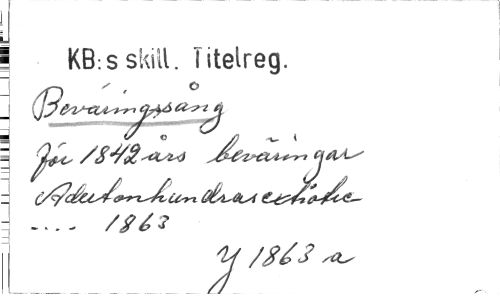 KB:s skill. Titelreg.
Beväringssång
för 1842 års beväringar
Adertonhundrasextiotre
.... 1863
Y 1863 a